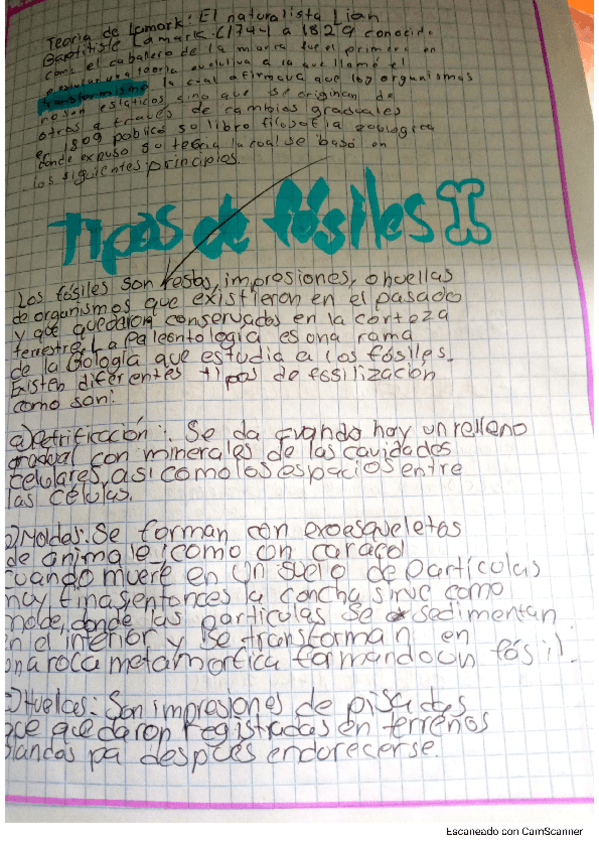 Teoria de Lamark: El naturalista Lian
Baptitiste Lamark (1744 a 1829 conocido
como el caballero de la marca fue el primero en
una teoria evolutiva a la que llamó el
transformismo la cual afirmava que los organismos
no son estáticos sino que se originan de
otros a través de cambios graduales
en 1809 publicó so libro filosofia zoologica
donde expuso so teoria la cual se basó en
los siguientes principios.
Tipos de fósiles
Los fósiles son restos, impresiones, o huellas
de organismos que existieron en el pasado
y que quedaron conservados en la corteza
terrestre. La Paleontologia es ona rama
de la Gología que estudia a los fósiles.
Existen diferentes tipos de fosilización
como son:
a) Petrificación:. Se da cuando hay un relleno
gradual con minerales de las cavidades
celulares, asi como los espacios entre
las células.
b) Moldes: Se forman con exoesqueletos
de animale, como con caracol
cuando muere en un suelo de partículas
muy finas, entonces la concha sirve como
molde, donde las particulas se sedimentan
en el interior y se transforman en
ona roca metamorfica formando un fósil.
c) Huellas: Son impresiones de pisadas
que quedaron registradas en terrenos
blandos pa despues endorecerse.
Escaneado con CamScanner